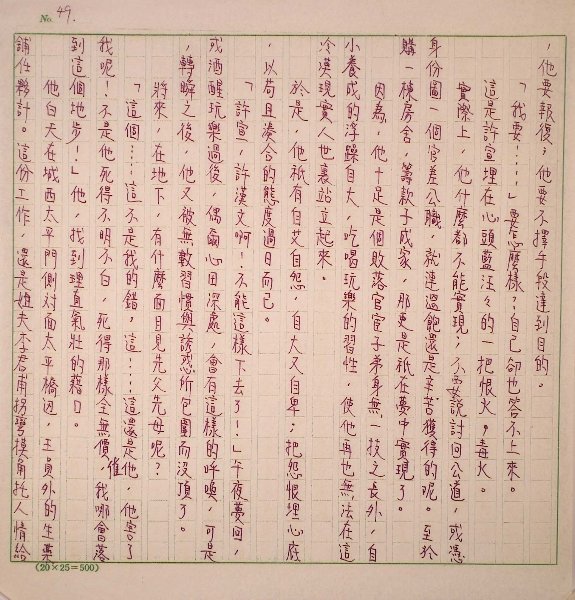 No. 49.
，他要報復；他要不擇手段達到目的。
「我要……」要怎麼樣？自己卻也答不上來。
這是許宣埋在心頭藍汪々的一把恨火，毒火。
實際上，他什麼都不能實現；不要說討回公道，或憑
身份圖一個官差公職，就連溫飽還是辛苦獲得的呢。至於
購一棟房舍，籌款子成家，那更是祇在夢中實現了。
因為，他十足是個敗落官宦子弟身無一技之長外，自
小養成的浮躁自大，吃喝玩樂的習性，使他再也無法在這
冷漠現實人世裏站立起來。
於是，他祇有自艾自怨，自大又自卑；把怨恨埋心底
，以苟且湊合的態度過日而已。
「許宣，許漢文啊！不能這樣下去了！」午夜夢回，
或酒醒玩樂過後，偶爾心田深處，會有這樣的呼喚，可是
，轉瞬之後，他又被無數習慣與誘惑所包圍而沒頂了。
將來，在地下，有什麼面目見先父先母呢？
「這個……這不是我的錯，這……這還是他，他害了
我呢！不是他死得不明不白，死得那樣全無價催，我哪會落
到這個地步！」他，找到理直氣壯的藉口。
他白天在城西太平門側對面太平橋邊，王員外的生藥
舖任夥計。這份工作，還是姐夫李君甫拐彎摸角托人情給
(20×25=500)